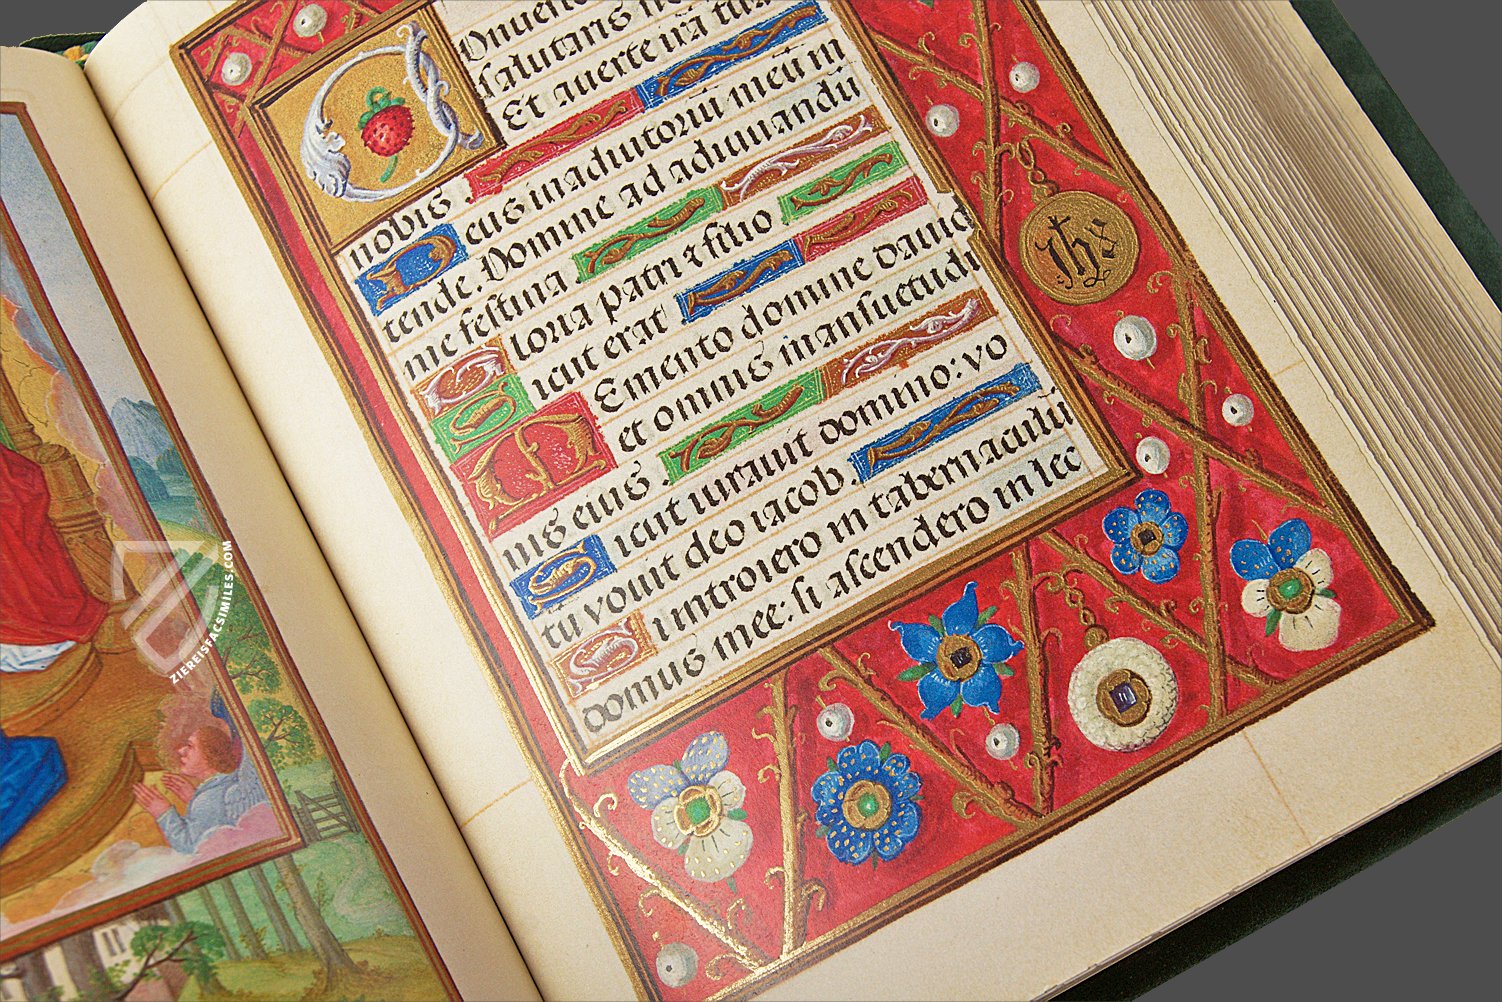 Onuerte nos
salutaris nos
Et auerte irā tuā
nobis.
Deus in adiutoriū meū in
tende. Domine ad adiuuandū
me festina
Gloria patri ⁊ filio
Sicut erat
Memento domine dauid
et omnis mansuetudi
nis eius.
Sicut iurauit domino: vo
tū vouit deo iacob.
Si introiero in tabernaculū
domus mee: si ascendero in lec
ihs
ZIEREISFACSIMILES.COM